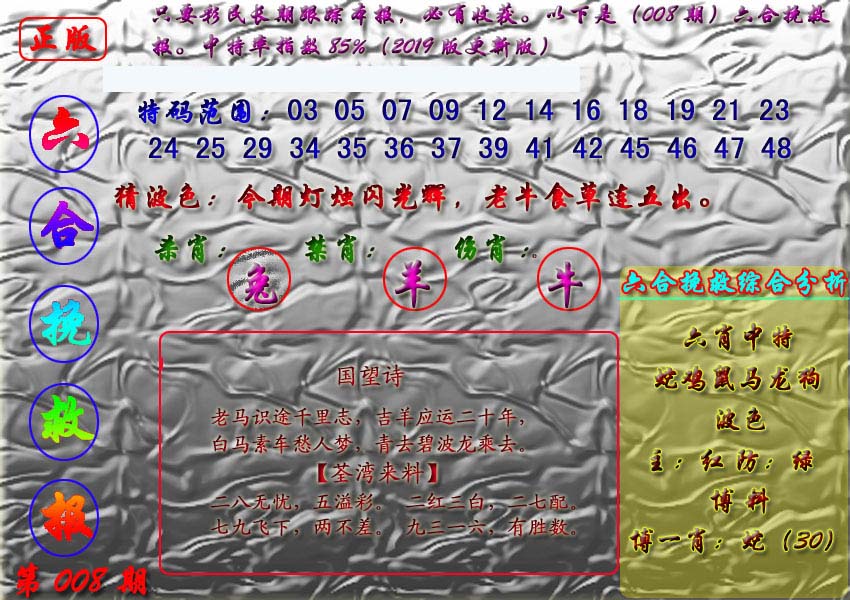 正版
只要彩民长期跟踪本报，必有收获。以下是（008期）六合挽救
报。中特率指数85%（2019版更新版）
六合挽救报
第008期
特码范围：03 05 07 09 12 14 16 18 19 21 23
24 25 29 34 35 36 37 39 41 42 45 46 47 48
猜波色：今期灯烛闪光辉，老牛食草连五出。
杀肖：兔 禁肖：羊 伤肖：牛。
国望诗
老马识途千里志，古羊应运二十年，
白马素车愁人梦，青去碧波龙乘去。
【荃湾来料】
二八无忧，五溢彩。 二红三白，二七配。
七九飞下，两不差。 九三一六，有胜数。
六合挽救综合分析
六肖中特
蛇鸡鼠马龙狗
波色
主：红 防：绿
博料
博一肖：蛇（30）